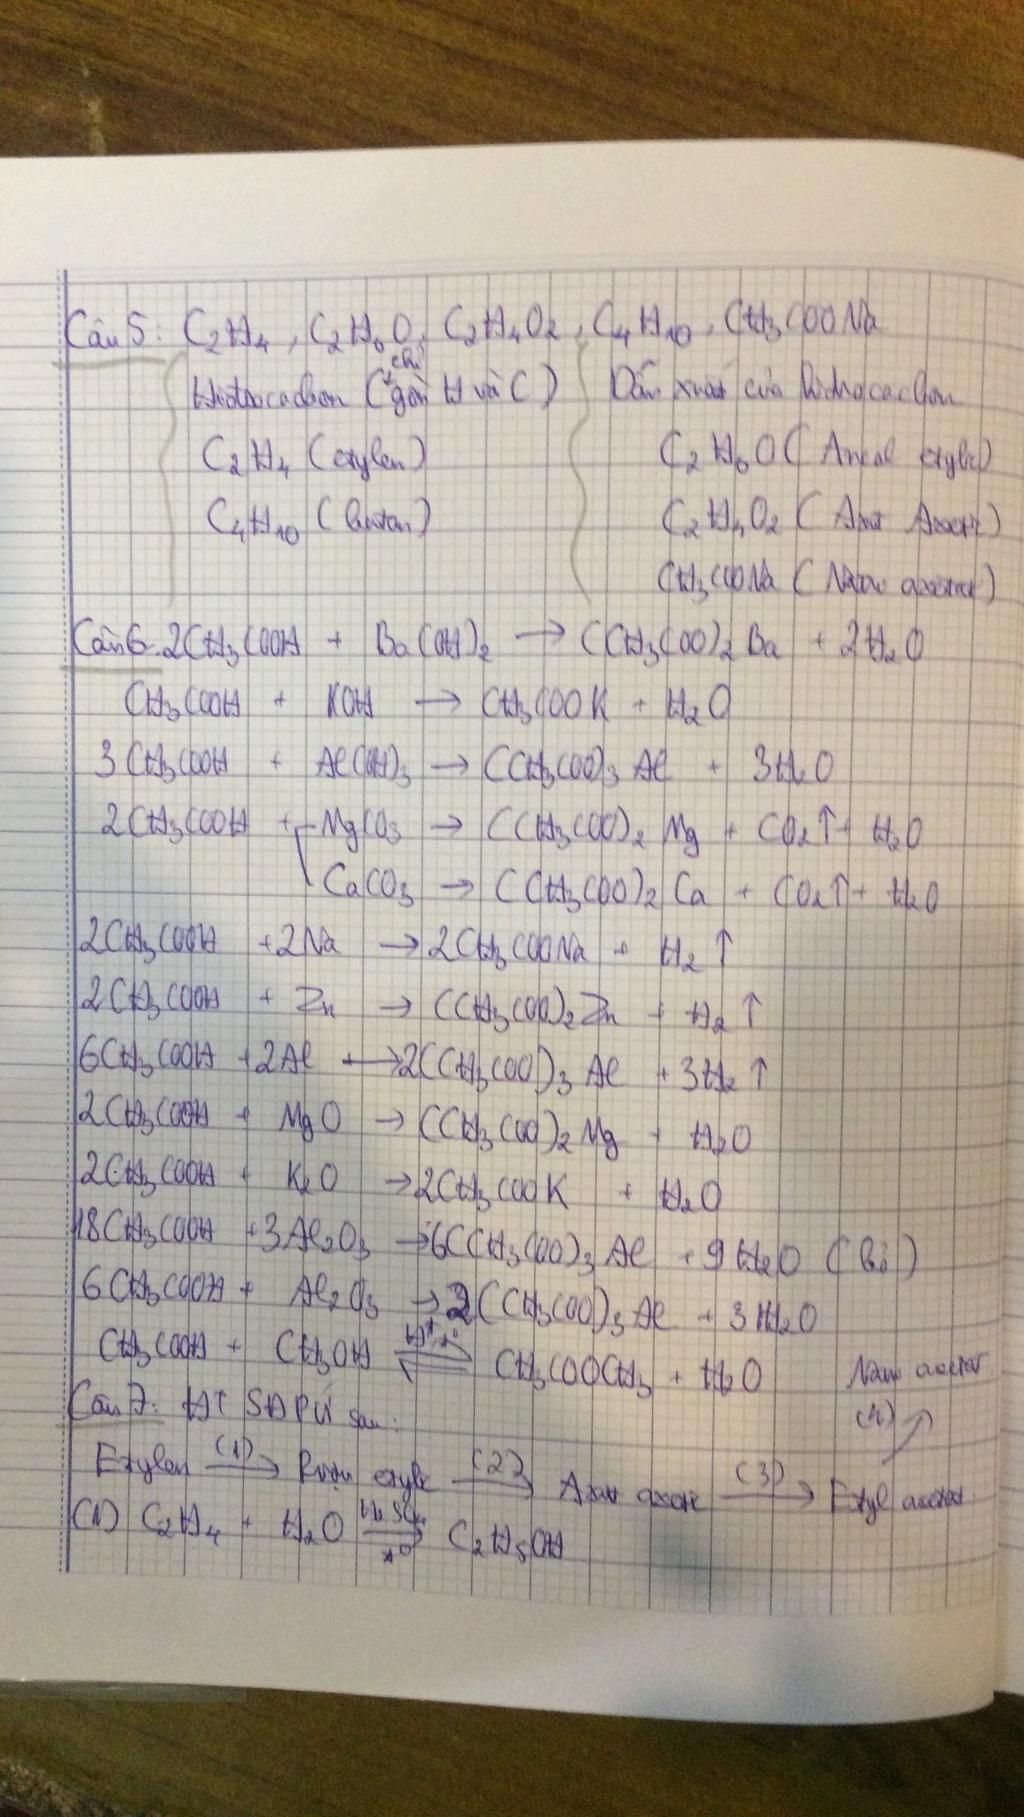 Câu 5: C2H4, C2H6O, C2H4O2, C4H10, CH3COONa
chỉ
Hidrocacbon (gồm H và C) Dẫn xuất của hidrocacbon
C2H4 (etylen) C2H6O (Ancol etylic)
C4H10 (butan) C2H4O2 (Axit Axetic)
CH3COONa (Natri axetat)
Câu 6. 2CH3COOH + Ba(OH)2 → (CH3COO)2Ba + 2H2O
CH3COOH + KOH → CH3COOK + H2O
3CH3COOH + Al(OH)3 → (CH3COO)3Al + 3H2O
2CH3COOH + MgCO3 → (CH3COO)2Mg + CO2↑ + H2O
CaCO3 → (CH3COO)2Ca + CO2↑ + H2O
2CH3COOH + 2Na → 2CH3COONa + H2↑
2CH3COOH + Zn → (CH3COO)2Zn + H2↑
6CH3COOH + 2Al → 2(CH3COO)3Al + 3H2↑
2CH3COOH + MgO → (CH3COO)2Mg + H2O
2CH3COOH + K2O → 2CH3COOK + H2O
18CH3COOH + 3Al2O3 → 6(CH3COO)3Al + 9H2O (bỏ)
6CH3COOH + Al2O3 → 2(CH3COO)3Al + 3H2O
CH3COOH + CH3OH ⇌ H+, t° CH3COOCH3 + H2O
Natri axetat
Câu 7: HT SĐPƯ sau:
(4)
Etylen (1)→ Rượu etylic (2)→ Axit axetic (3)→ Etyl axetat
(1) C2H4 + H2O H2SO4 → t° C2H5OH